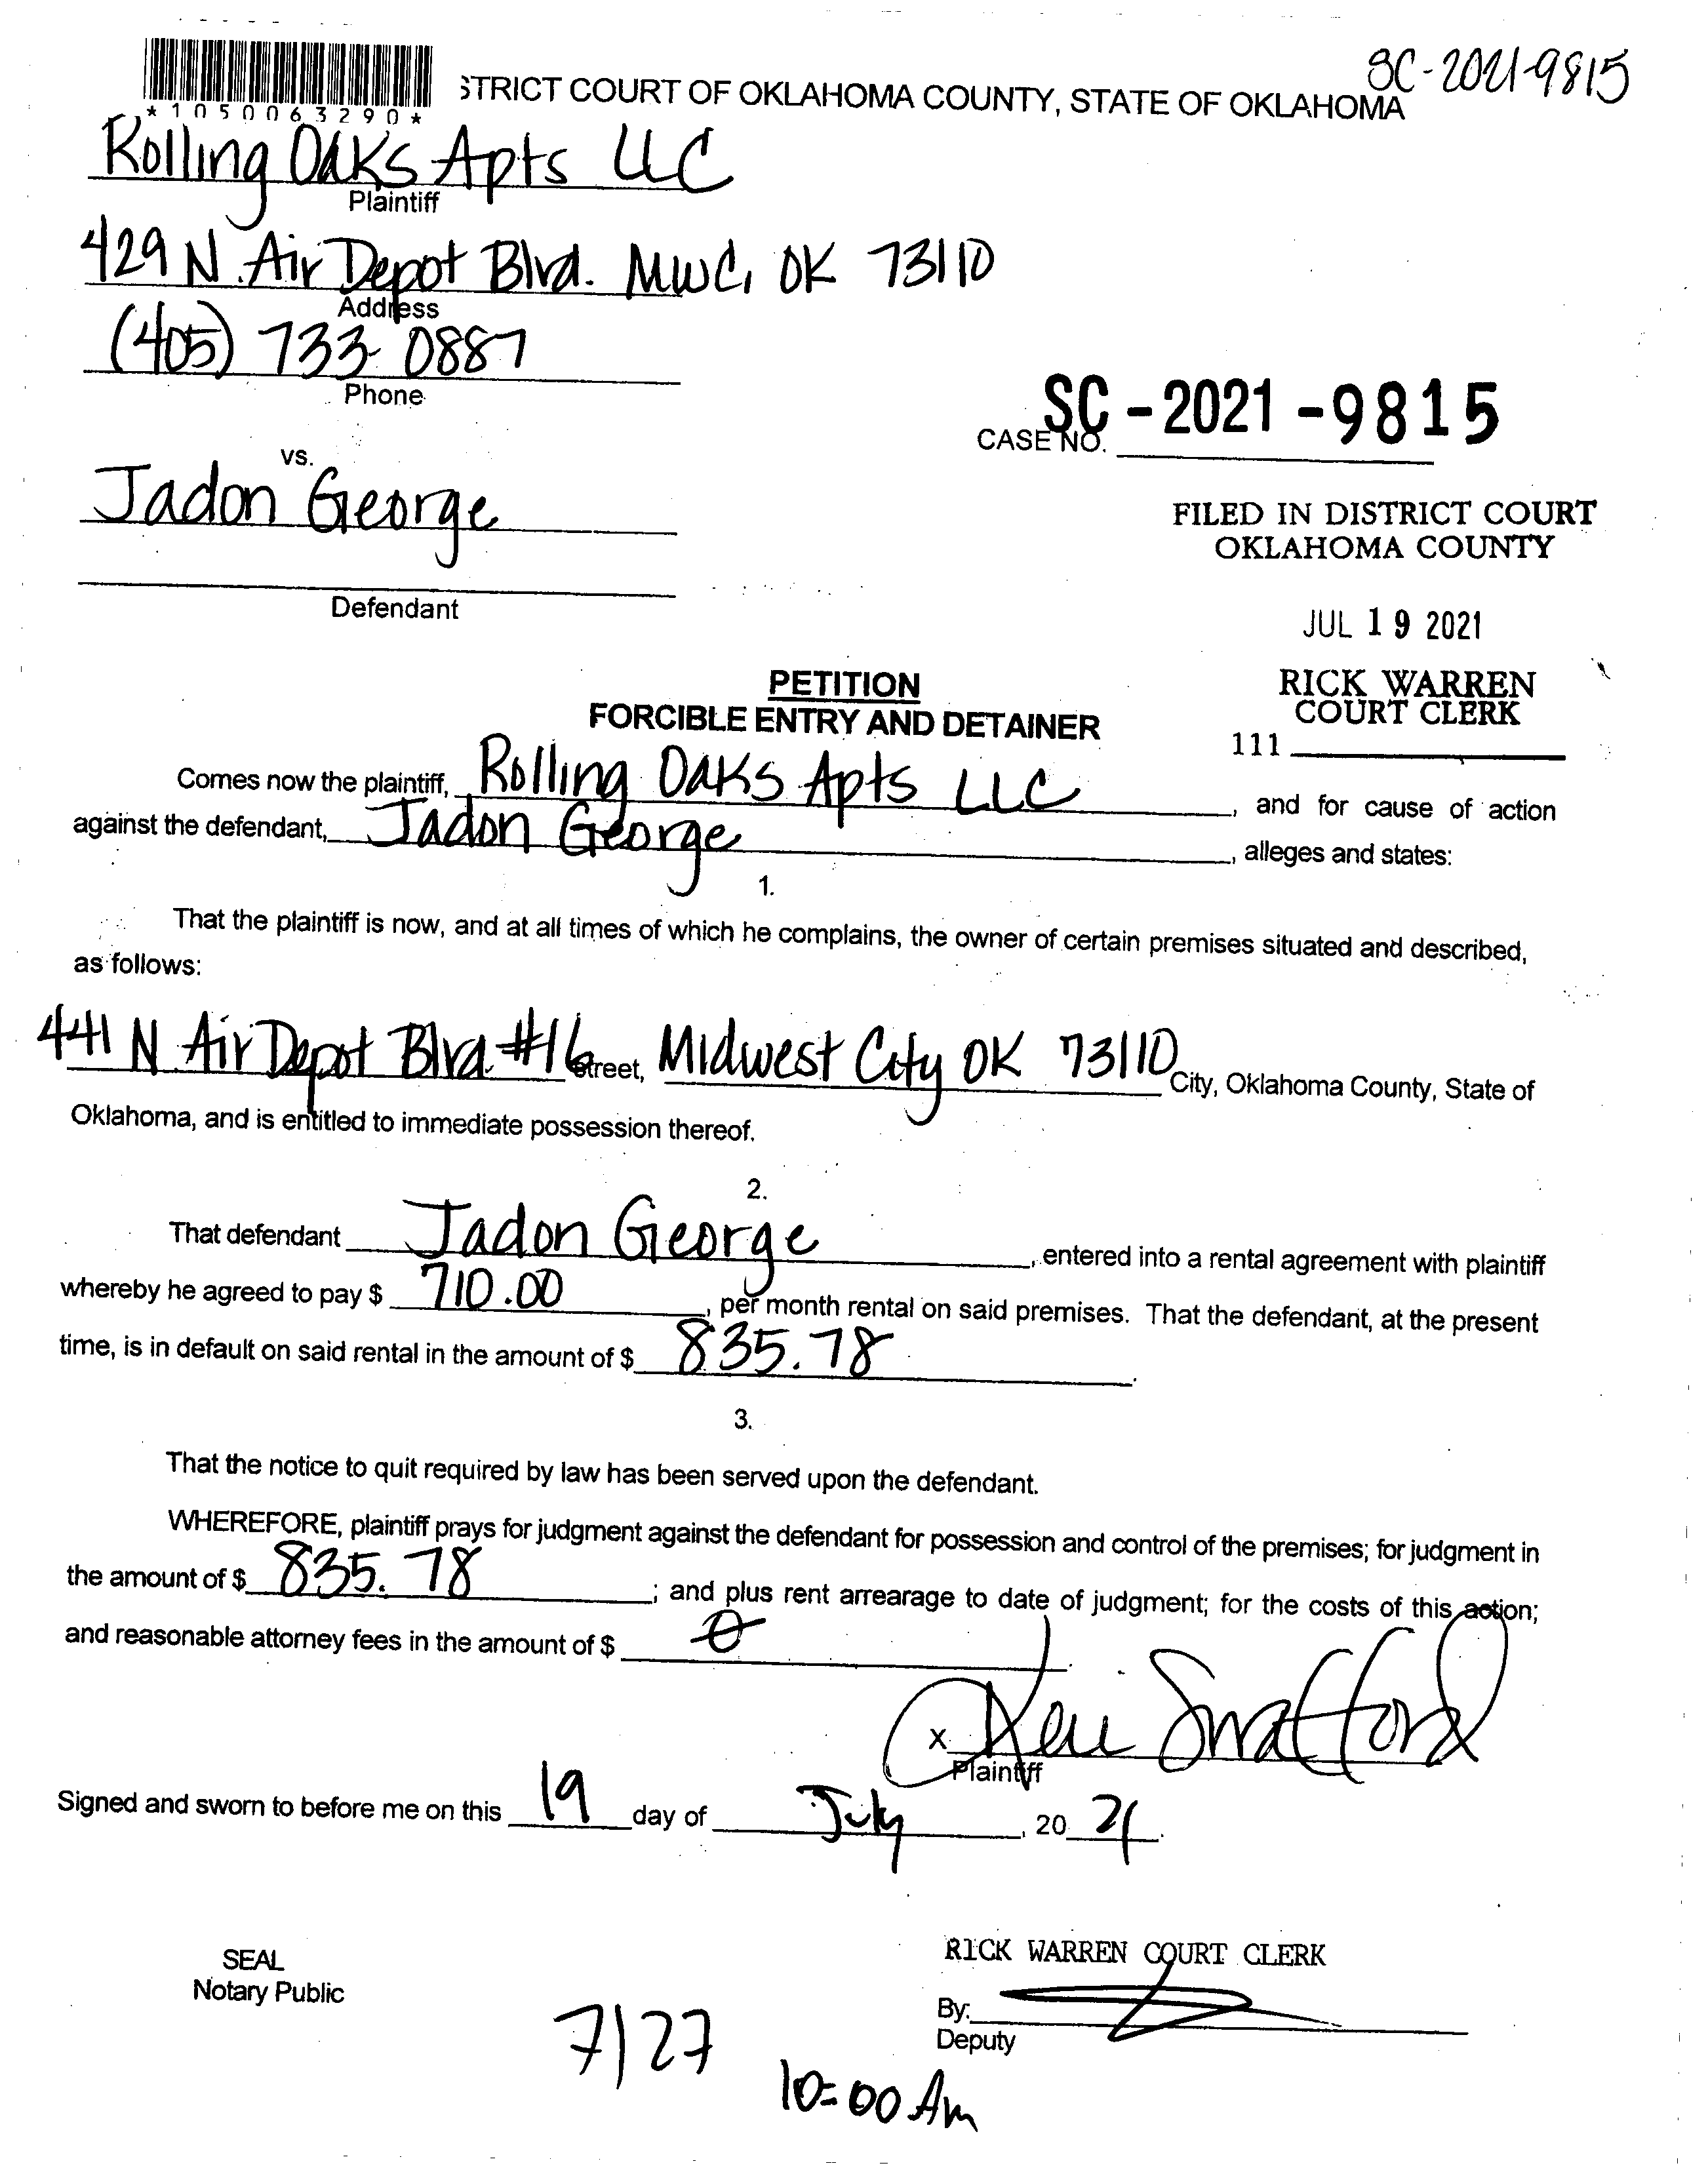 SC-2021-9815
*1050063290*
STRICT COURT OF OKLAHOMA COUNTY, STATE OF OKLAHOMA
Rolling Oaks Apts LLC
Plaintiff
429 N. Air Depot Blvd. MWC, OK 73110
Address
(405) 733-0887
Phone
SC-2021-9815
CASE NO.
vs.
Jadon George
Defendant
FILED IN DISTRICT COURT
OKLAHOMA COUNTY
JUL 19 2021
RICK WARREN
COURT CLERK
111
PETITION
FORCIBLE ENTRY AND DETAINER
Comes now the plaintiff, Rolling Oaks Apts LLC, and for cause of action
against the defendant, Jadon George, alleges and states:
1.
That the plaintiff is now, and at all times of which he complains, the owner of certain premises situated and described,
as follows:
441 N. Air Depot Blvd #16 Street, Midwest City OK 73110 City, Oklahoma County, State of
Oklahoma, and is entitled to immediate possession thereof.
2.
That defendant Jadon George, entered into a rental agreement with plaintiff
whereby he agreed to pay $ 710.00, per month rental on said premises. That the defendant, at the present
time, is in default on said rental in the amount of $ 835.78.
3.
That the notice to quit required by law has been served upon the defendant.
WHEREFORE, plaintiff prays for judgment against the defendant for possession and control of the premises; for judgment in
the amount of $ 835.78; and plus rent arrearage to date of judgment; for the costs of this action;
and reasonable attorney fees in the amount of $ 0.
X Keri Swafford
Plaintiff
Signed and sworn to before me on this 19 day of July, 20 21.
SEAL
Notary Public
RICK WARREN COURT CLERK
By:
Deputy
7/27
10:00 Am